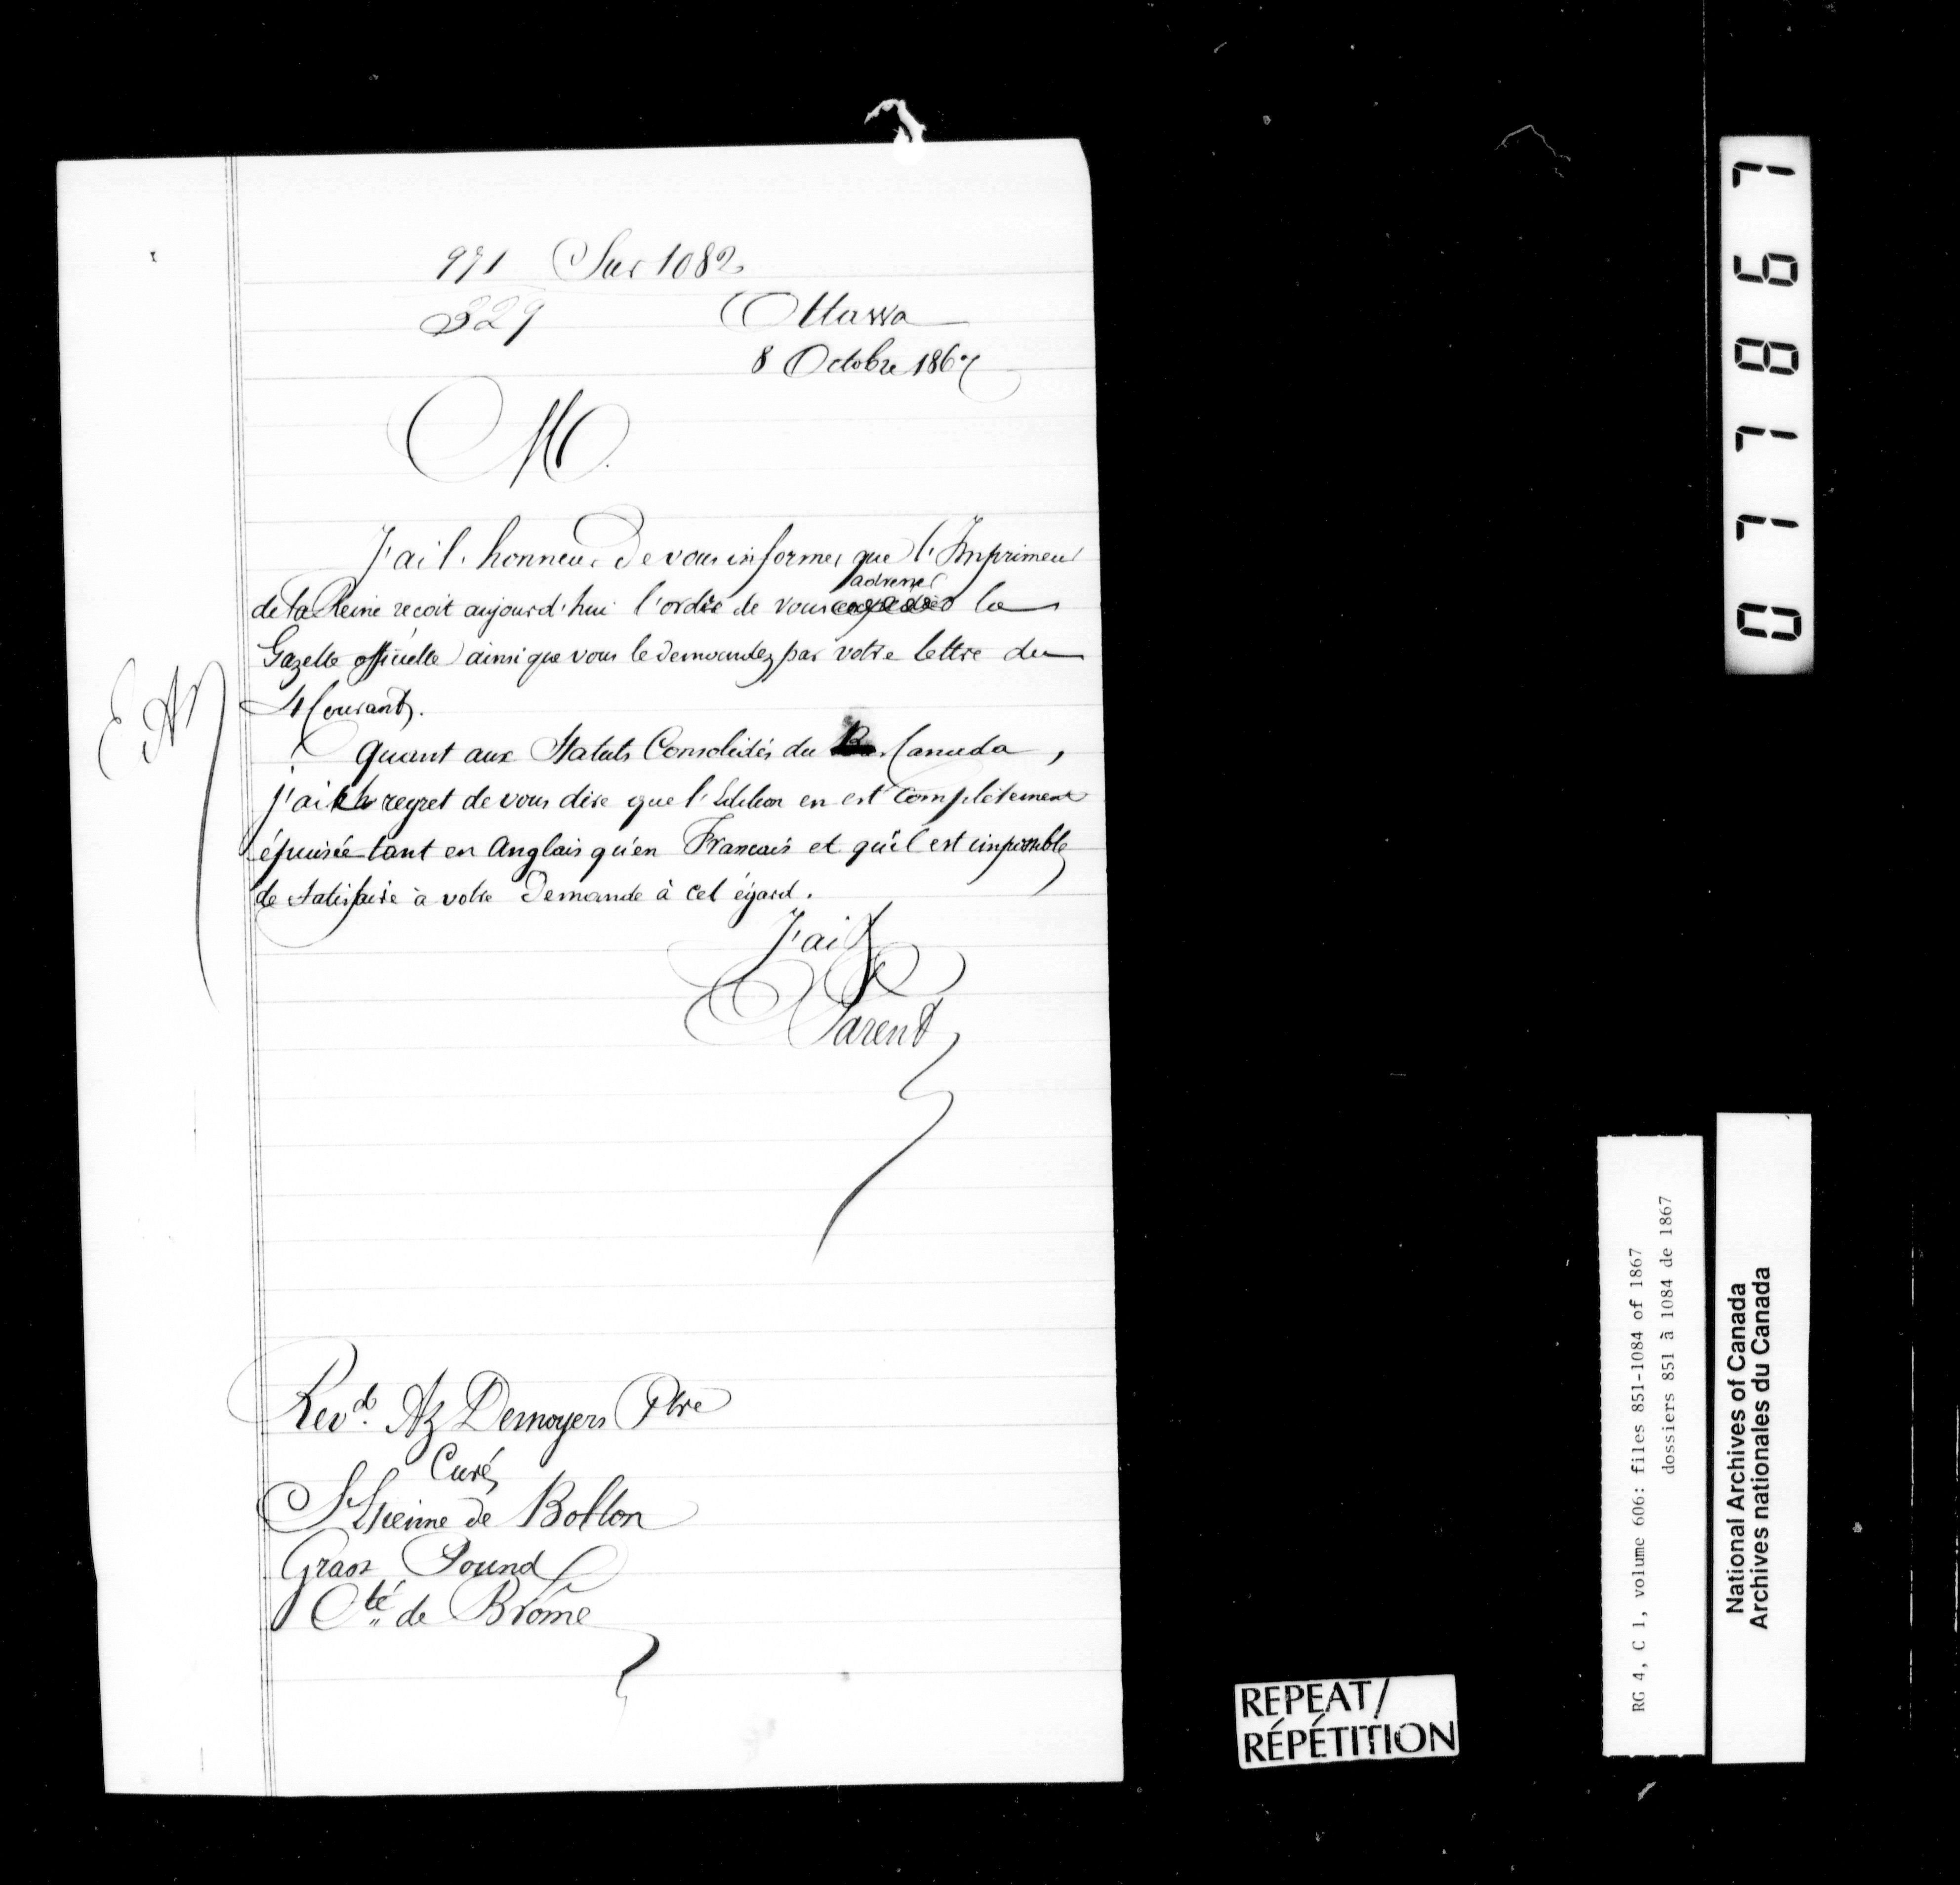 991 Sur 1082
329
Ottawa
8 Octobre 1867
M.
J'ai l'honneur de vous informer que l'Imprimeur
adresser
de la Reine reçoit aujourd'hui l'ordre de vous la
Gazette officielle ainsi que vous le demandez par votre lettre du
4 Courant.
EAM
Quant aux Statuts Consolidés du Canada,
j'ai le regret de vous dire que l'Edition en est complètement
épuisée tant en Anglais qu'en Francais et qu'il est impossible
de satisfaire à votre demande à cet égard.
J'ai &
E Parent
Revd. Az Desnoyers Ptre
Curé
St Etienne de Bolton
Grass Pound
Cté de Brôme
077867
REPEAT/
RÉPÉTITION
RG 4, C 1, volume 606: files 851-1084 of 1867
dossiers 851 à 1084 de 1867
National Archives of Canada
Archives nationales du Canada